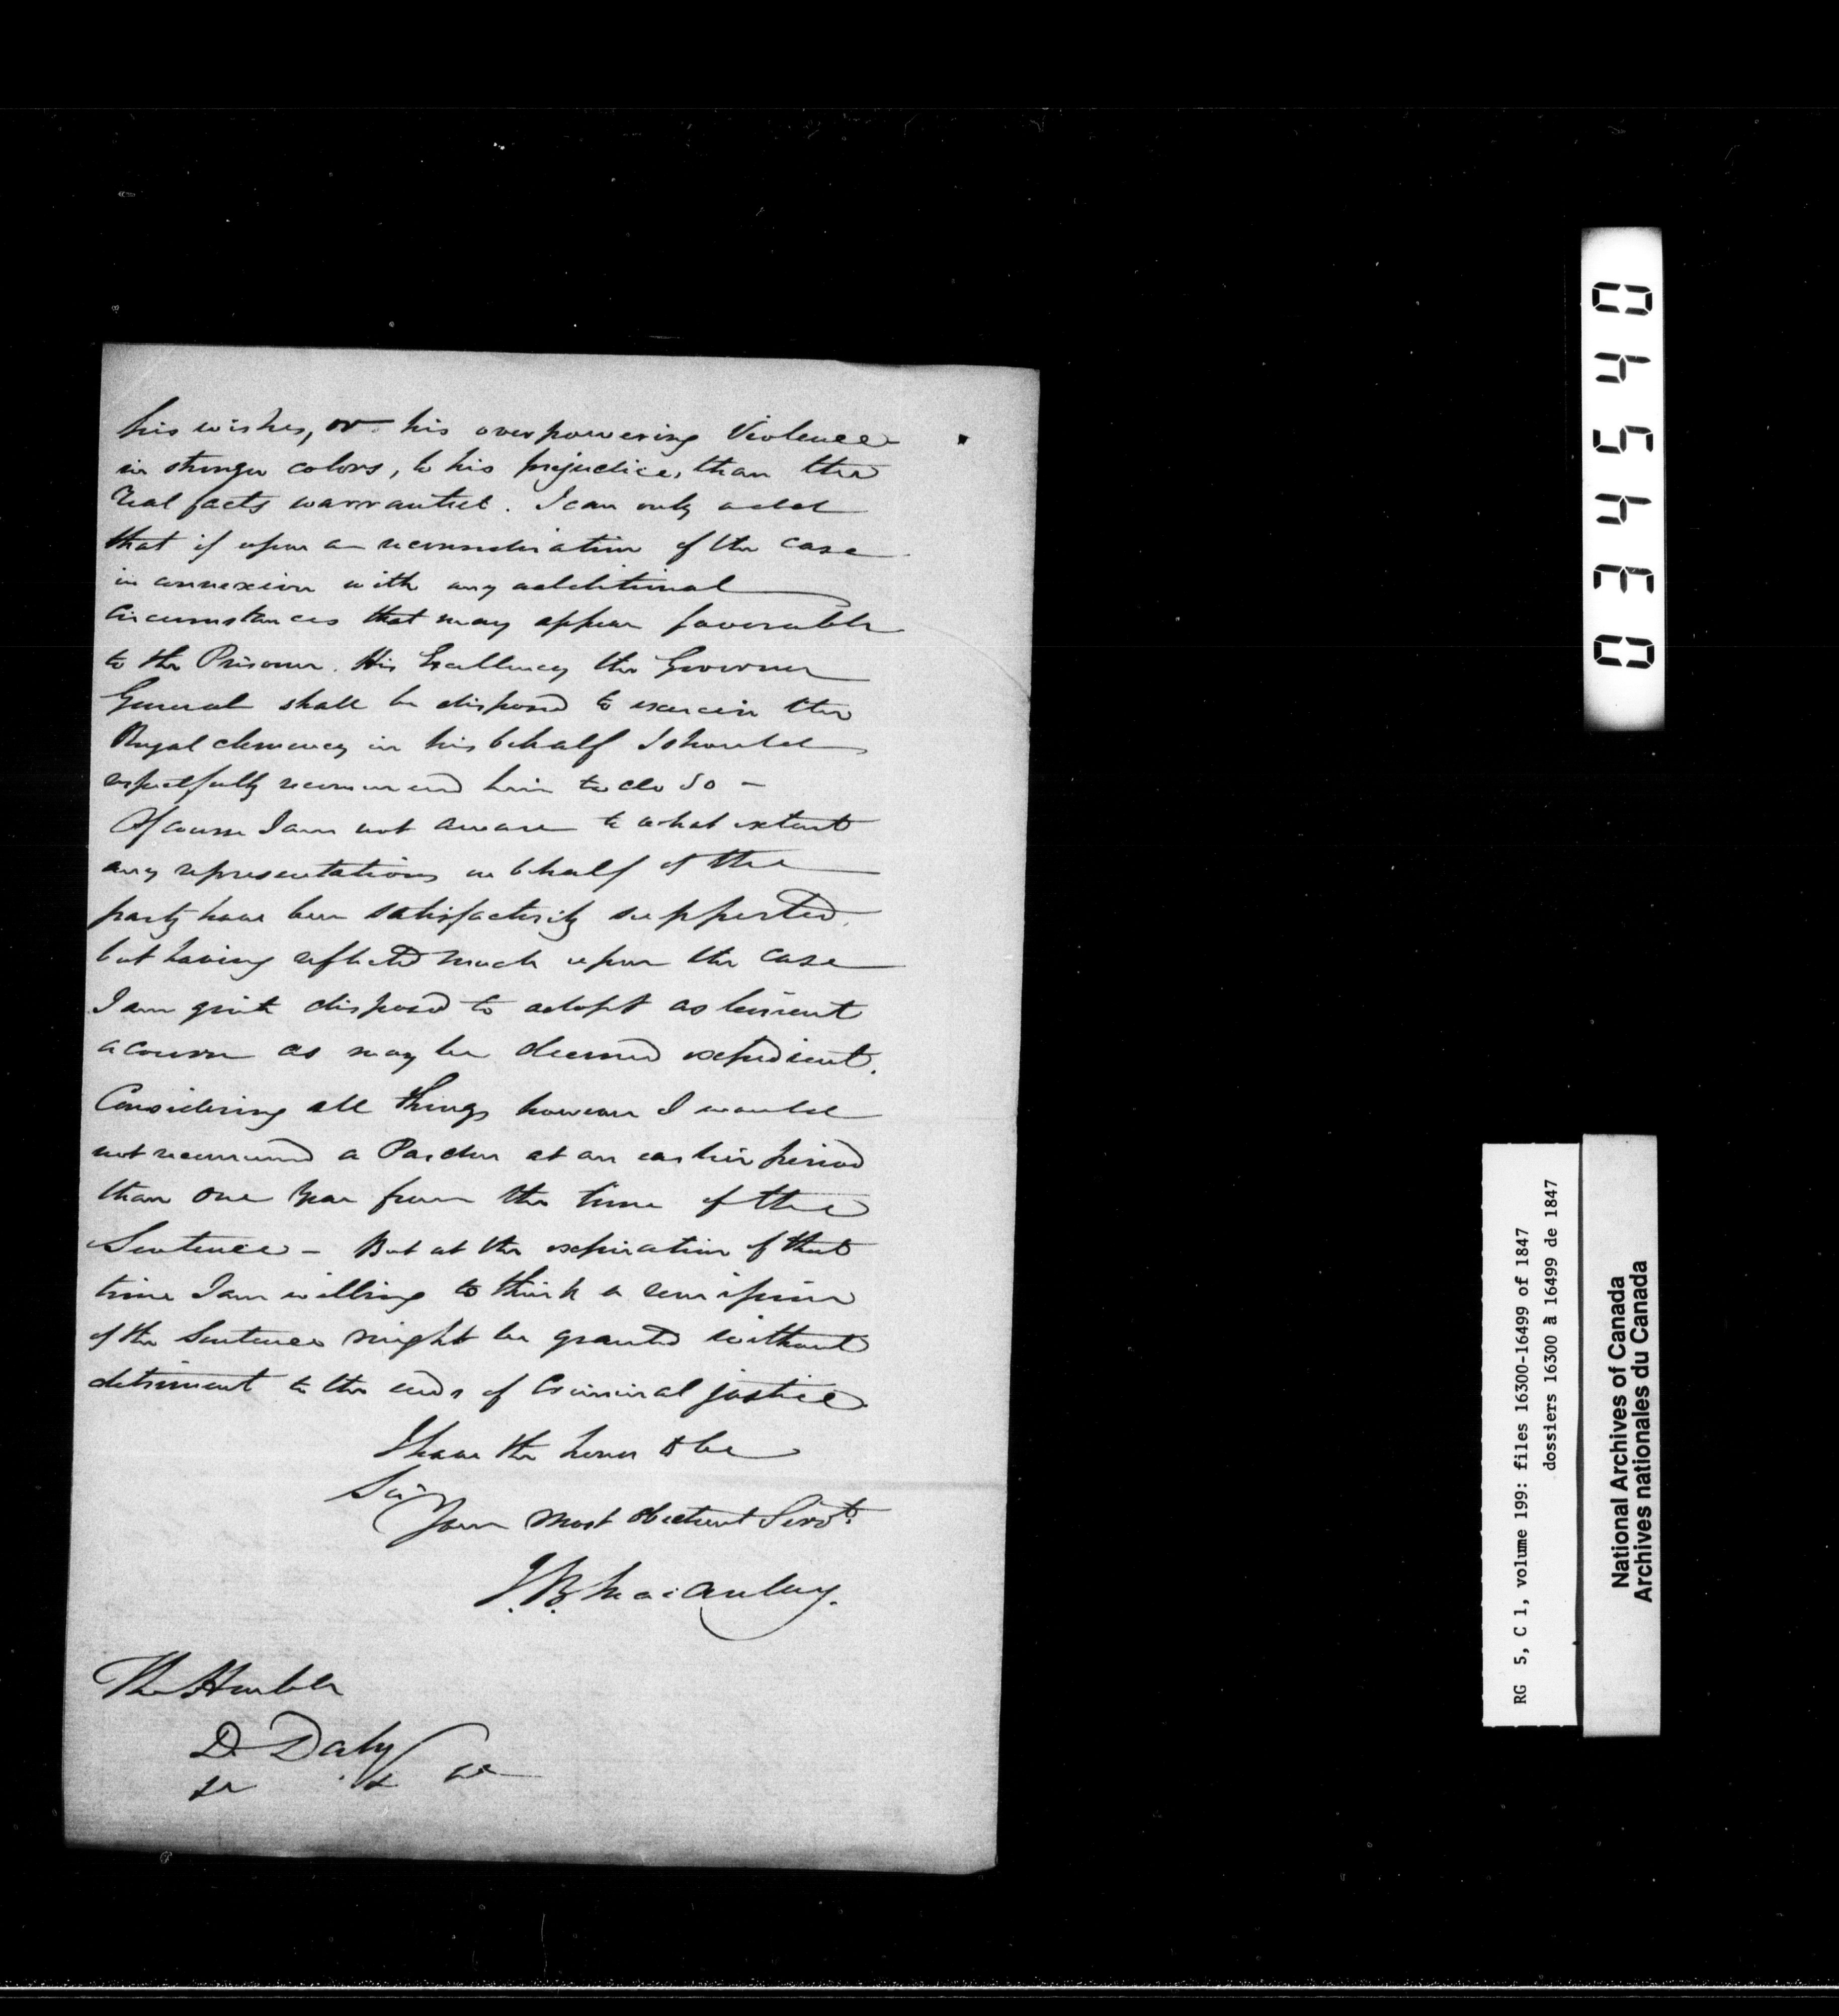 his wishes, or his overpowering violence
in stronger colors, to his prejudice, than the
real facts warranted. I can only add
that if upon a reconsideration of the case
in connexion with any additional
circumstances that may appear favorable
to the Prisoner. His Excellency the Governor
General shall be disposed to exercise the
Royal clemency in his behalf I should
respectfully recommend him to do so –
Of course I am not aware to what extent
any representations on behalf of the
party have been satisfactorily supported,
but having reflected much upon the case
I am quite disposed to adopt as lenient
a course as may be deemed expedient.
Considering all things however I would
not recommend a Pardon at an earlier period
than one year from the time of the
Sentence – But at the expiration of that
time I am willing to think a remission
of the Sentence might be granted without
detriment to the ends of Criminal justice
I have the honor to be
Sir
Your most obedient Servt.
J. B. Macaulay.
The Honble
D. Daly
&c &c &c
034540
RG 5, C 1, volume 199: files 16300-16499 of 1847
dossiers 16300 à 16499 de 1847
National Archives of Canada
Archives nationales du Canada